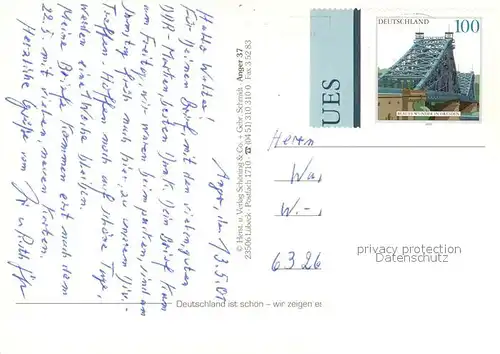 Anger, 13.5.01
Hallo Walter!
Für Deinen Brief mit den vielen guten
DDR-Marken besten Dank. Dein Brief kam
am Freitag, wir waren beim packen, sind am
Samstag früh nach hier, zu unserem
Treffen. Hoffen noch auf schöne Tage,
werden eine Woche bleiben.
Meine Briefe kommen erst nach dem
22.5. mit vielen, neuen Karten.
Herzliche Grüße von
© Herst. u. Verlag Schöning & Co. + Gebr. Schmidt · Anger 37
23506 Lübeck · Postfach 1710 · ☎ (04 51) 310 310 · Fax 3 52 83
Deutschland ist schön – wir zeigen es
UES
DEUTSCHLAND 100
BLAUES WUNDER IN DRESDEN
Herrn
Wa,
W.-,
6326
privacy protection
Datenschutz